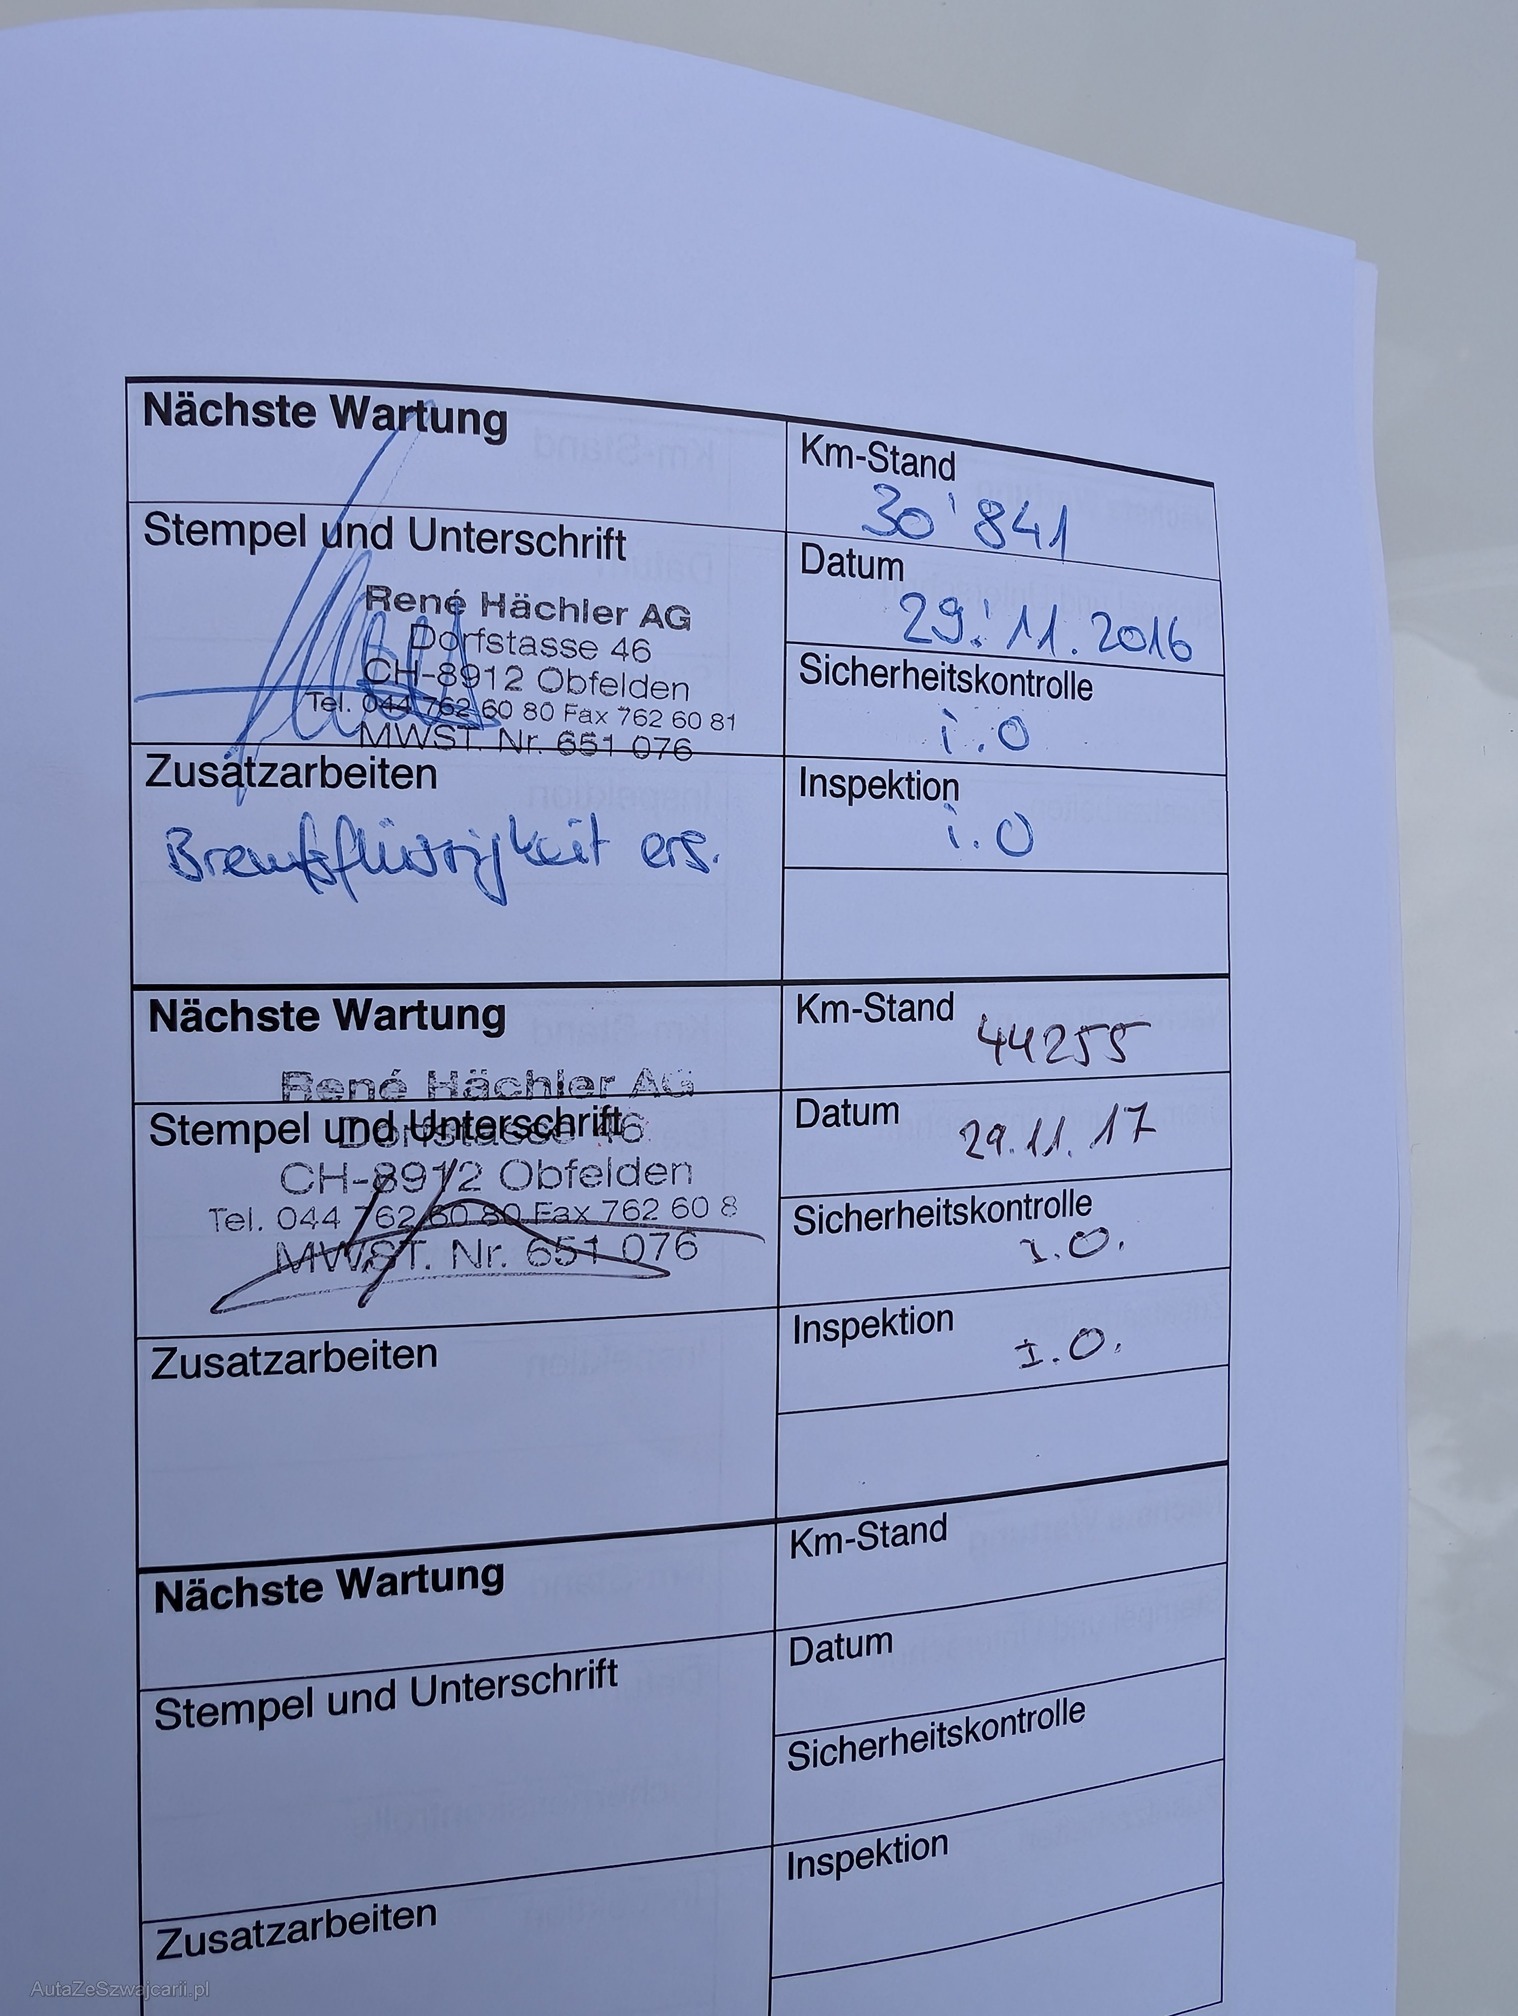 Nächste Wartung
Km-Stand
30'841
Stempel und Unterschrift
René Hächler AG
Dorfstasse 46
CH-8912 Obfelden
Tel. 044 762 60 80 Fax 762 60 81
MWST. Nr. 651 076
Datum
29.11.2016
Sicherheitskontrolle
i.O
Zusatzarbeiten
Bremsflüssigkeit ers.
Inspektion
i.O
Nächste Wartung
Km-Stand
44255
René Hächler AG
Stempel und Unterschrift
Dorfstasse 46
CH-8912 Obfelden
Tel. 044 762 60 80 Fax 762 60 8
MWST. Nr. 651 076
Datum
29.11.17
Sicherheitskontrolle
I.O.
Zusatzarbeiten
Inspektion
I.O.
Nächste Wartung
Km-Stand
Stempel und Unterschrift
Datum
Sicherheitskontrolle
Zusatzarbeiten
Inspektion
AutaZeSzwajcarii.pl